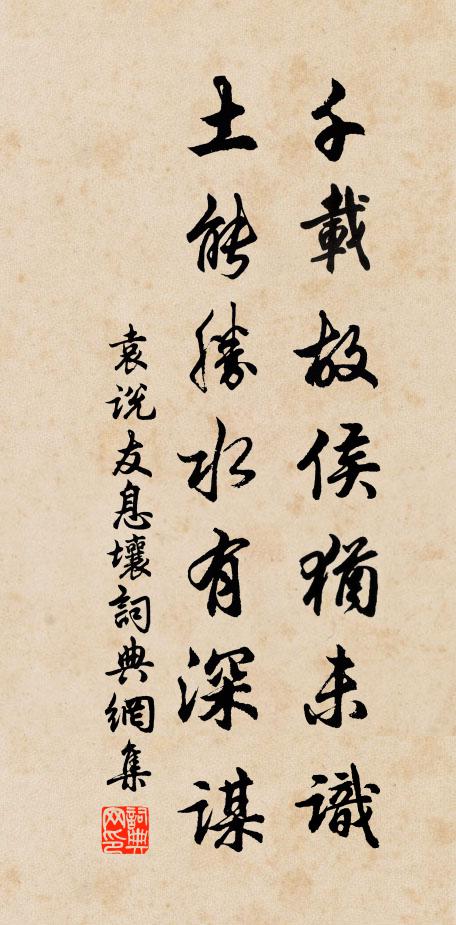 千載故侯猶未識
土能勝水有深謀
袁说友息壤詞典網集
詞典网印